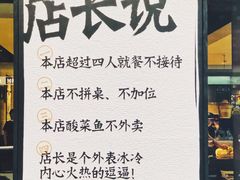 店长说
一
本店超过四人就餐不接待
二
本店不拼桌、不加位
三
本店酸菜鱼不外卖
四
店长是个外表冰冷
内心火热的逗逼！